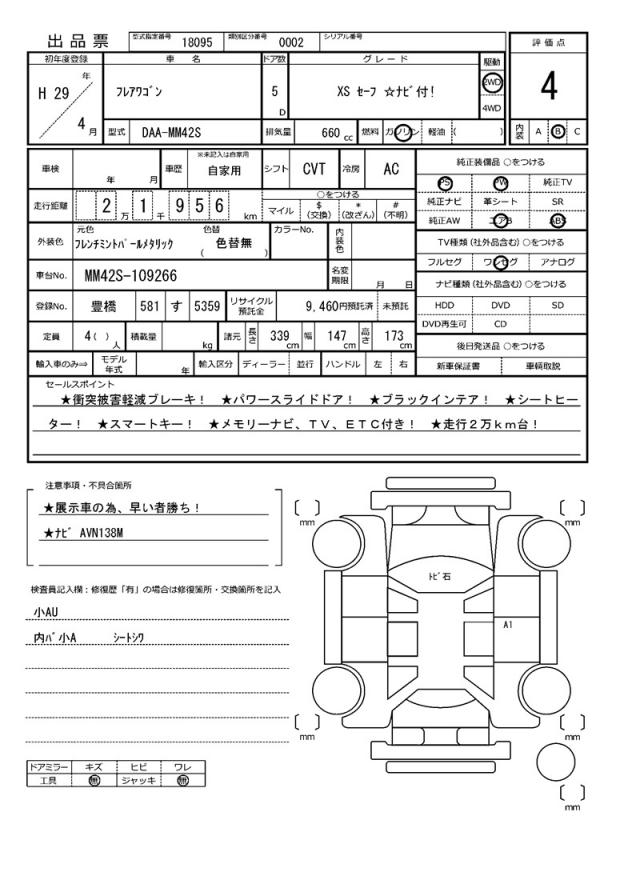 出品票 型式指定番号 18095 類別区分番号 0002 シリアル番号
評価点
4
内装 A B C
初年度登録 車名 ドア数 グレード 駆動
H 29 年 4 月
フレアワゴン 5 D XS セーフ ☆ナビ付! 2WD 4WD
型式 DAA-MM42S 排気量 660 cc 燃料 ガソリン 軽油 ( )
車検 年 月 車歴 ※未記入は自家用 自家用 シフト CVT 冷房 AC
走行距離 2 万 1 千 9 5 6 km ○をつける
マイル $(交換) *(改ざん) #(不明)
外装色 元色 フレンチミントパールメタリック 色替 ( 色替無 ) カラーNo. 内装色
車台No. MM42S-109266 名変期限 月 日
登録No. 豊橋 581 す 5359 リサイクル預託金 9,460円預託済 未預託
定員 4( )人 積載量 kg 諸元 長さ 339 cm 幅 147 cm 高さ 173 cm
輸入車のみ⇒ モデル年式 年 輸入区分 ディーラー 並行 ハンドル 左 右
純正装備品 ○をつける
PS PW 純正TV
純正ナビ 革シート SR
純正AW エアB ABS
TV種類(社外品含む) ○をつける
フルセグ ワンセグ アナログ
ナビ種類(社外品含む) ○をつける
HDD DVD SD
DVD再生可 CD
後日発送品 ○をつける
新車保証書 車輌取説
セールスポイント
★衝突被害軽減ブレーキ! ★パワースライドドア! ★ブラックインテア! ★シートヒー
ター! ★スマートキー! ★メモリーナビ、TV、ETC付き! ★走行2万km台!
注意事項・不具合箇所
★展示車の為、早い者勝ち!
★ナビ AVN138M
検査員記入欄:修復歴「有」の場合は修復箇所・交換箇所を記入
小AU
内パ小A シートシワ
ドアミラー キズ ヒビ ワレ
工具 無 ジャッキ 無
[ ] mm
[ ] mm
トビ石
A1
[ ] mm
[ ] mm
[ ] mm